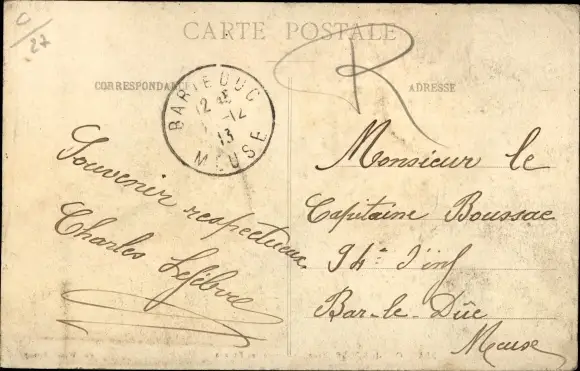 C/27
CARTE POSTALE
CORRESPONDA
ADRESSE
R
BAR-LE-DUC
12
-12
13
MEUSE
Souvenir respectueux
Charles Lefebvre
Monsieur le
Capitaine Boussac
94e d'inf
Bar-le-Dûc
Meuse